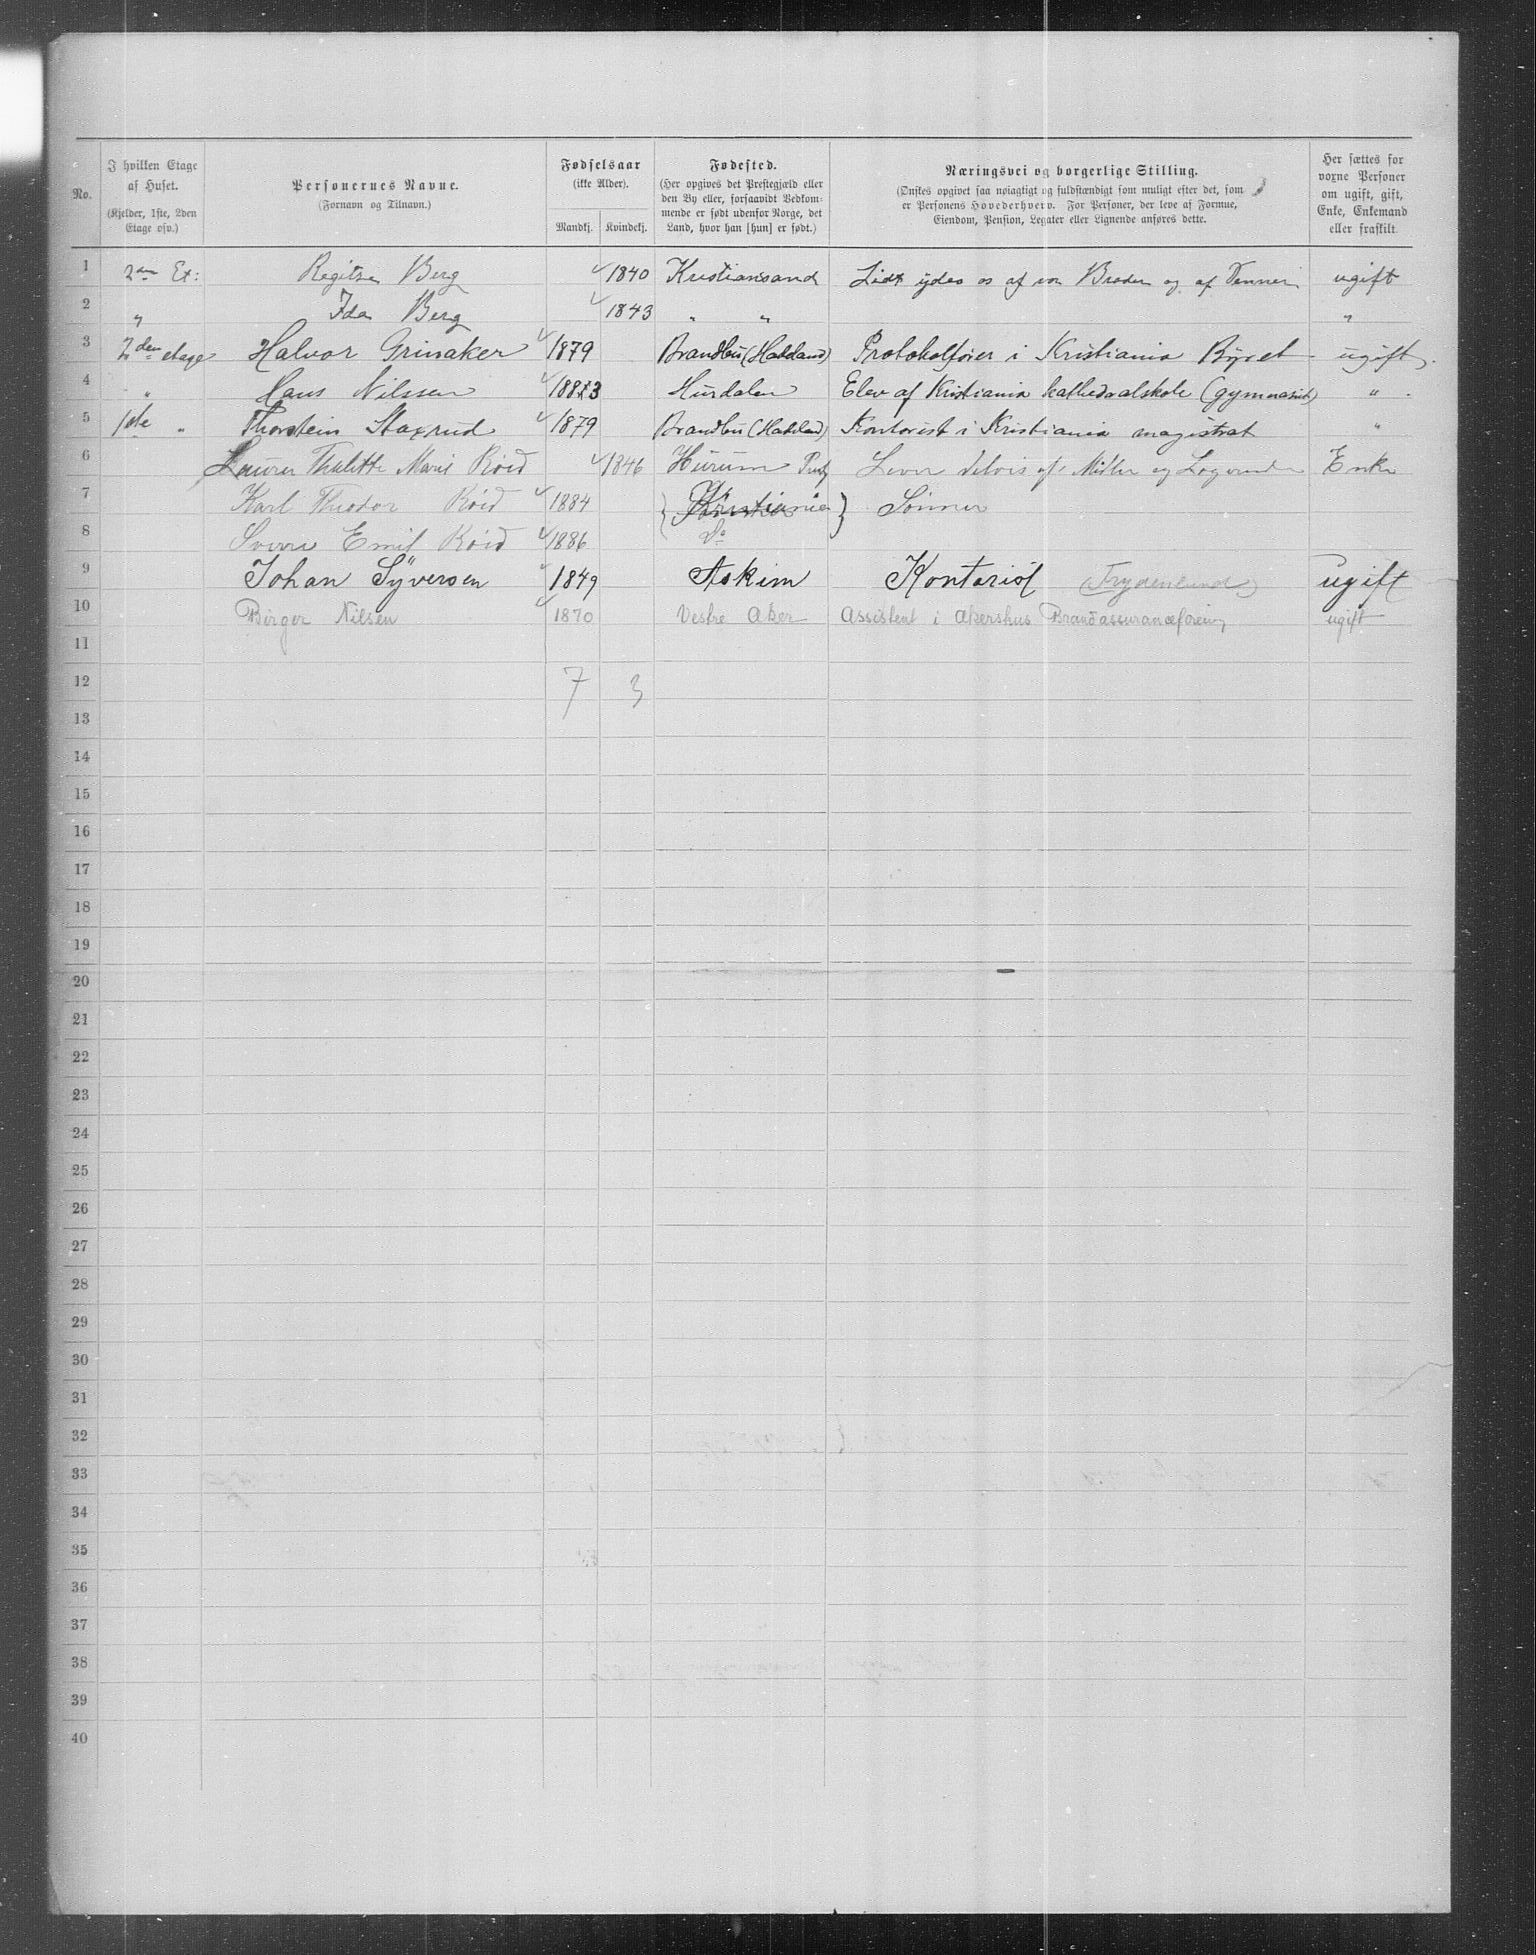 No.
I hvilken Etage af Huset. (Kjelder, 1ste, 2den Etage osv.)
Personernes Navne. (Fornavn og Tilnavn.)
Fødselsaar (ikke Alder).
Mandkj. Kvindekj.
Fødested. (Her opgives det Prestegjæld eller den By eller, forsaavidt Vedkommende er født udenfor Norge, det Land, hvor han [hun] er født.)
Næringsvei og borgerlige Stilling. (Ønskes opgivet saa nøiagtigt og fuldstændigt som muligt efter det, som er Personens Hovederhverv. For Personer, der leve af Formue, Eiendom, Pension, Legater eller Lignende anføres dette.)
Her sættes for voxne Personer om ugift, gift, Enke, Enkemand eller fraskilt.
1 2den Et: Regitze Berg 1840 Kristiansand Lidt ydes os af vor Broder og af Venner ugift
2 " Ida Berg 1843 " " "
3 2den etage Halvor Grinaker 1879 Brandbu (Hadeland) Protokolfører i Kristiania Byret ugift.
4 " Hans Nilssen 1883 Hurdalen Elev af Kristiania kathedralskole (gymnasist) "
5 1ste " Thorstein Staxrud 1879 Brandbu (Hadeland) Kontorist i Kristiania magistrat "
6 Laura Thalette Marie Röid 1846 Hurum Lever delvis af Midler og Logerende Enke
7 Karl Theodor Röid 1884 } Kristiania } Sönner
8 Sverre Emil Röid 1886 Do
9 Johan Syversen 1849 Askim Kontorist (Frydenlund) ugift
10 Birger Nilsen 1870 Vestre Aker Assistent i Akershus Brandassuranceforening ugift
11
12 7 3
13
14
15
16
17
18
19
20
21
22
23
24
25
26
27
28
29
30
31
32
33
34
35
36
37
38
39
40